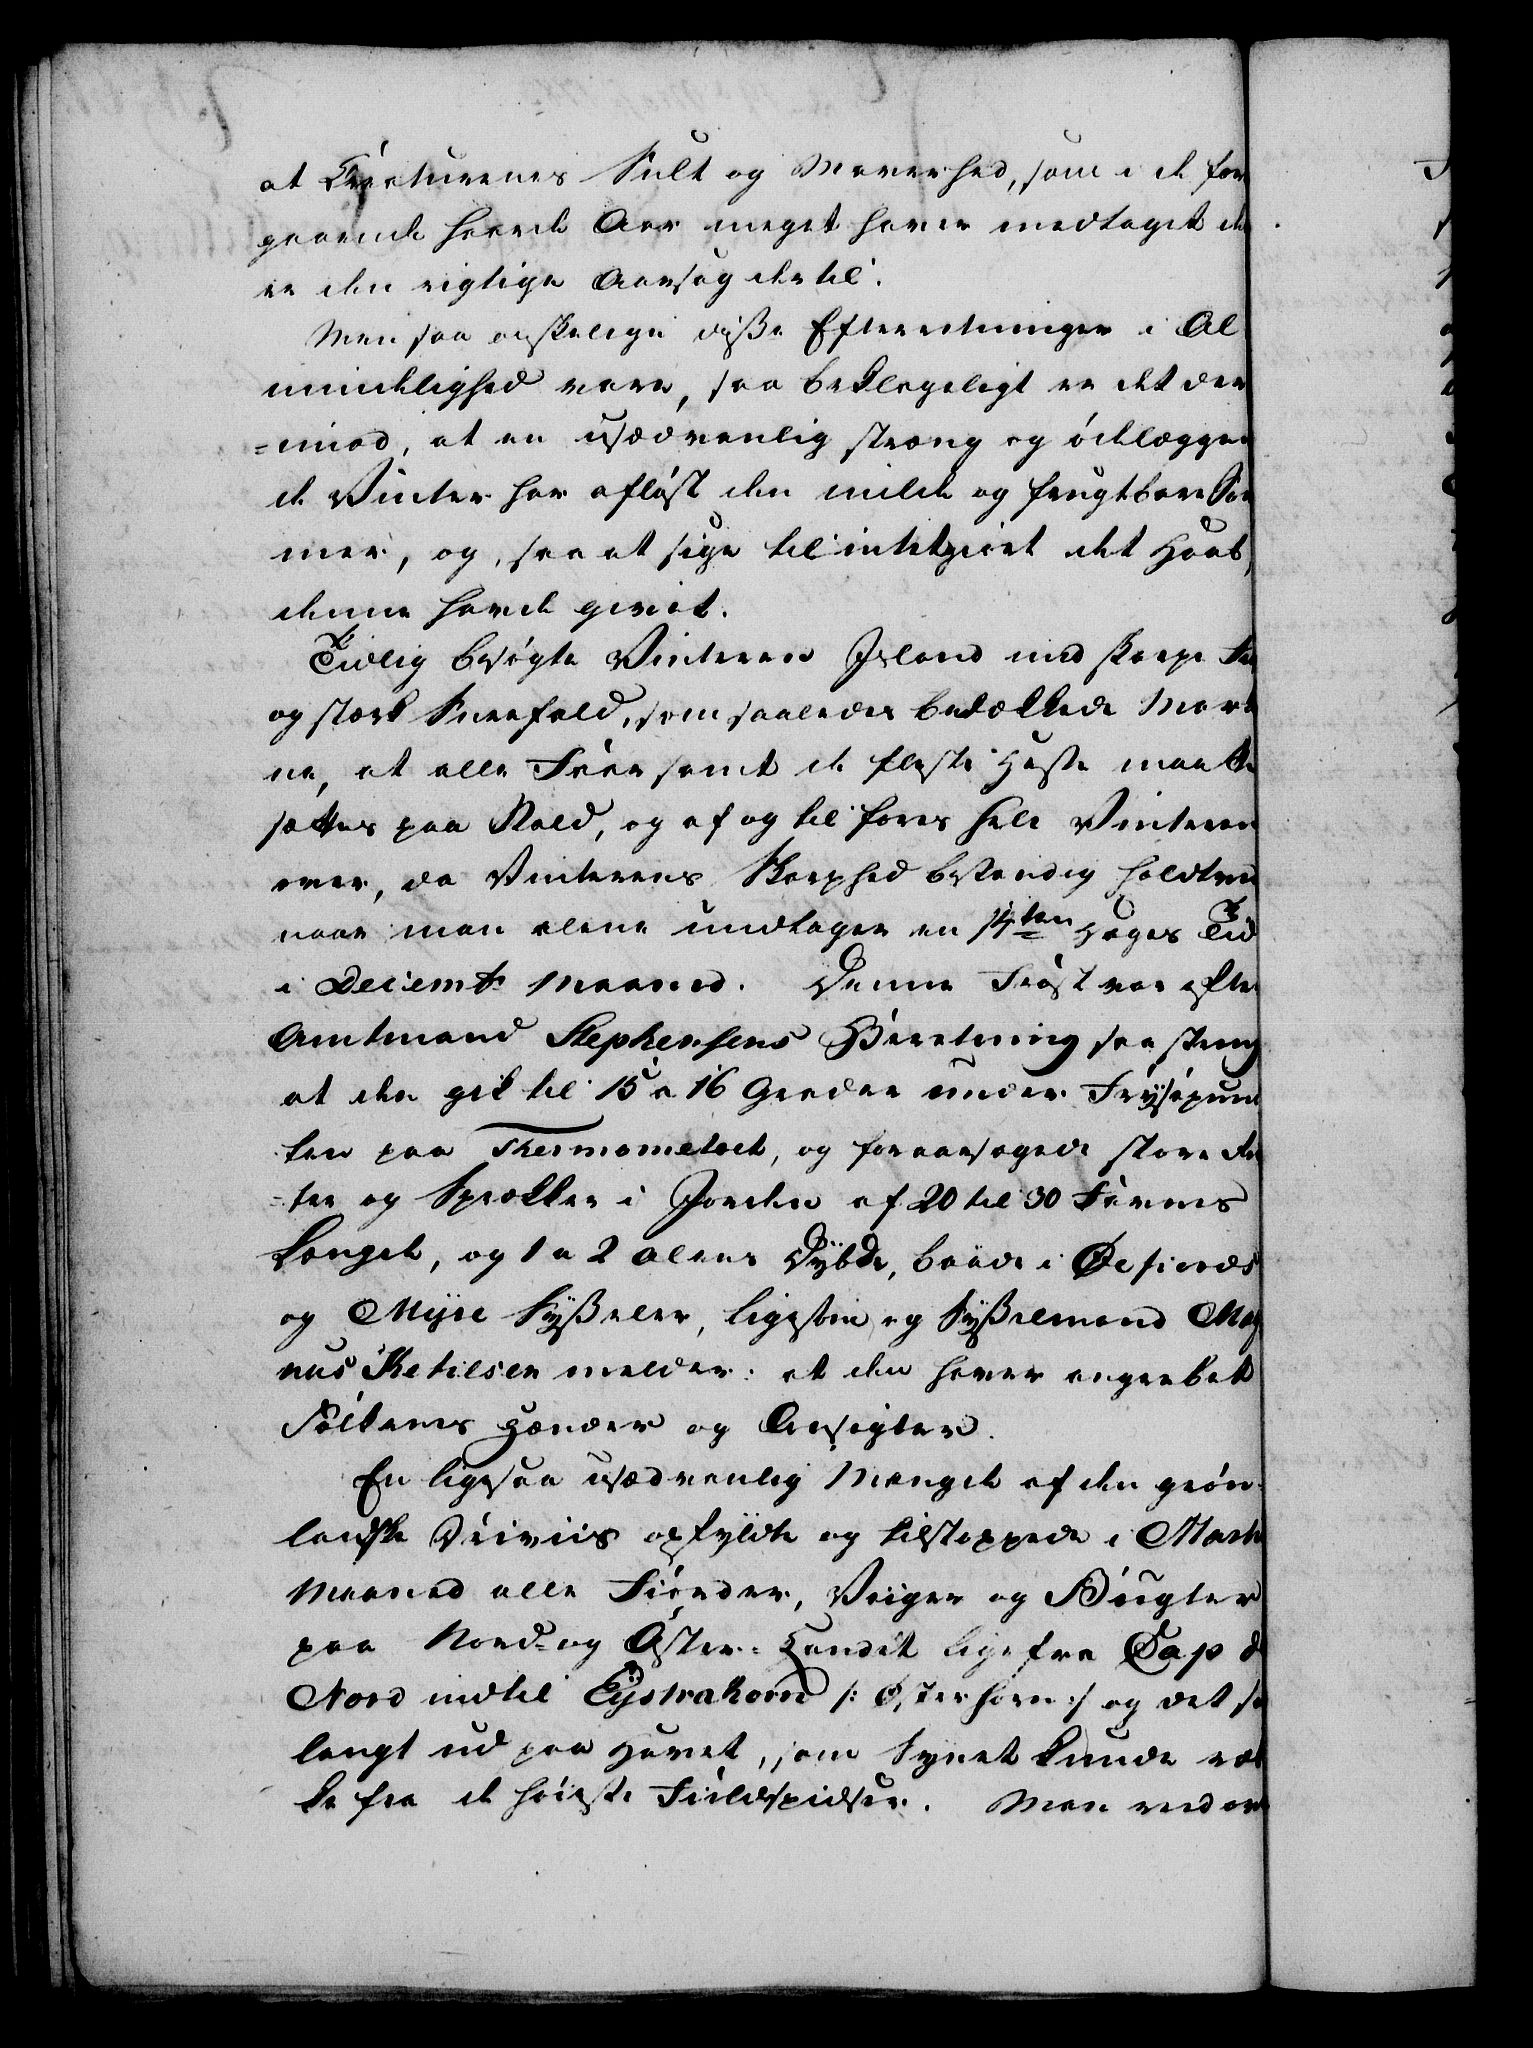 at Creaturenes Sult og Maverhed, som i de for
gaaende haarde Aar meget haver medtaget de
er den rigtige Aarsag dertil.
Men saa ønskelige disse Efterretninger i Al
mindelighed vare, saa beklageligt er det der
=imod, at en usædvanlig stræng og ödelæggen
de Vinter har afløst den milde og frugtbare Som
mer, og, saa at sige til intetgiort det Haab,
denne havde givet.
Tidlig besögte Vinteren Island med skarpe
og stærk Sneefald, som saaledes bedækkede Marke
ne, at alle Faar samt de fleste Heste maatte
sættes paa Stald, og af og til fores hele Vinteren
over, da Vinterens Skarphed bestandig holdt ved
naar man alene undtager en 14ten Dages Tid
i Decembr Maaned. Denne Frost var efter
Amtmand Stephensens Beretning saa streng
at den gik til 15 a 16 Grader under Frysepunc
ten paa Thermometret, og foraarsagede store
=ter og Sprækker i Jorden af 20 til 30 Favnes
Længde, og 1 a 2 Alens Dÿbde, baade i Øefiords
og Myre Sysseler, ligesom og Sysselmand Mag
nus Ketilsen melder: at den haver angrebet
Folkenes Hænder og Ansigter.
En ligesaa usædvanlig Mængde af den grøn
landske Driviis opfyldte og tilstoppede i Marti
Maaned alle Fiorder, Viiger og Bugter
paa Nord- og Öster-Landet lige fra Cap d
Nord indtil Eÿstrahorn /: Österhorn :/ og det sa
langt ud paa Havet, som Synet kunde ræk
ke fra de höieste Fieldspidser. Man ved